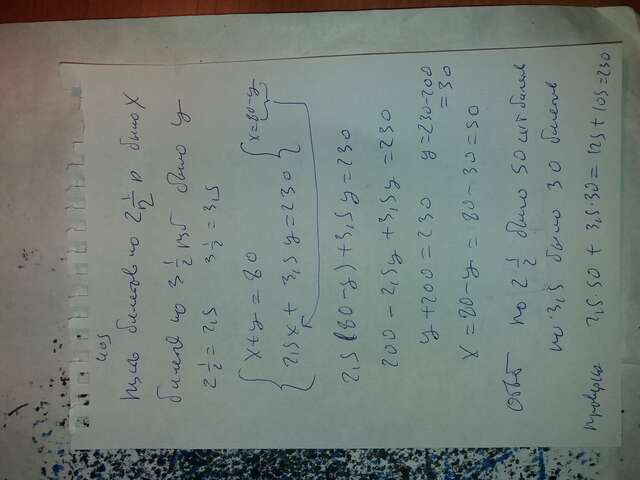 405
Пусть билетов по 2 1/2 р было x
билетов по 3 1/2 руб было y
2 1/2 = 2,5 3 1/2 = 3,5
{ x+y = 80 { x = 80-y
2,5x + 3,5y = 230
2,5(80-y) + 3,5y = 230
200 - 2,5y + 3,5y = 230
y + 200 = 230 y = 230-200
= 30
x = 80-y = 80-30 = 50
Ответ по 2 1/2 было 50 шт билетов
по 3,5 было 30 билетов
Проверка 2,5·50 + 3,5·30 = 125 + 105 = 230